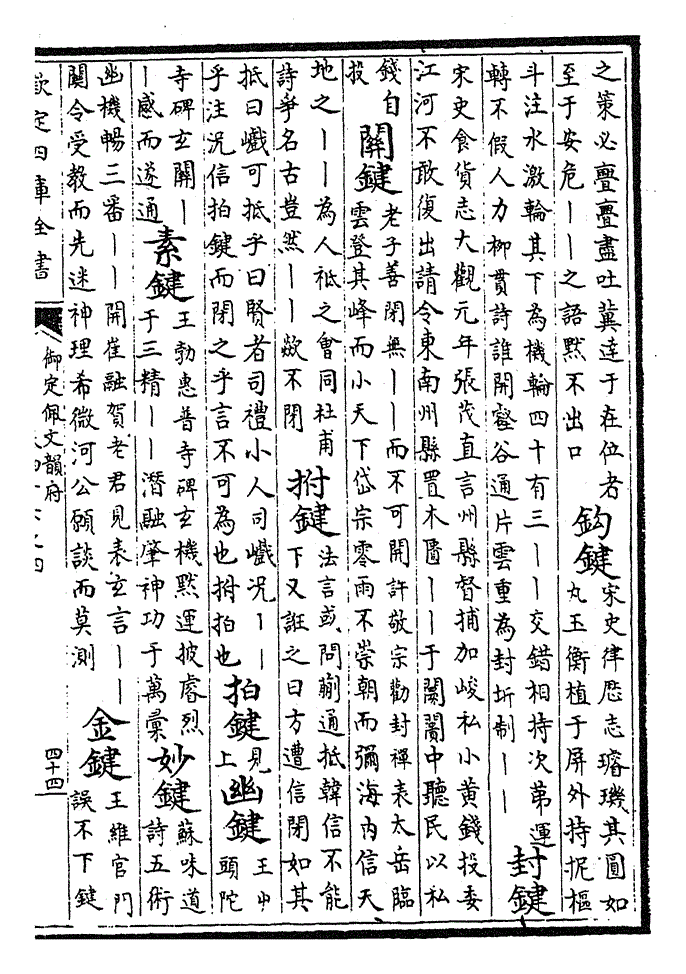 之策必亹亹盡吐冀達于在位者
至于安危丨丨之語默不出口
鈎鍵
宋史律厯志璿璣其圓如
丸玉衡植于屏外持扼樞
斗注水激輪其下為機輪四十有三丨丨交錯相持次第運
轉不假人力柳貫詩誰開豀谷通片雲重為封圻制丨丨
封鍵
宋史食貨志大觀元年張茂直言州縣督捕加峻私小黄錢投委
江河不敢復出請令東南州縣置木匱丨丨于闤闠中聽民以私
錢自
投
關鍵
老子善閉無丨丨而不可開許敬宗勸封禪表太岳臨
雲登其峰而小天下岱宗零雨不崇朝而彌海内信天
地之丨丨為人祗之會同杜甫
詩爭名古豈然丨丨欻不閉
拊鍵
法言或問蒯通抵韓信不能
下又誑之曰方遭信閉如其
抵曰巇可抵乎曰賢者司禮小人司巇况丨丨
乎注况信拍鍵而閉之乎言不可為也拊拍也
拍鍵
見
上
幽鍵
王屮
頭陀
寺碑玄關丨
丨感而遂通
素鍵
王勃惠普寺碑玄機默運披睿烈
于三精丨丨潛融肇神功于萬彙
妙鍵
蘇味道
詩五術
幽機暢三番丨丨開崔融賀老君見表玄言丨丨
關令受教而先迷神理希微河公願談而莫測
金鍵
王維官門
誤不下鍵
欽定四庫全書
御定佩文韻府
四十四